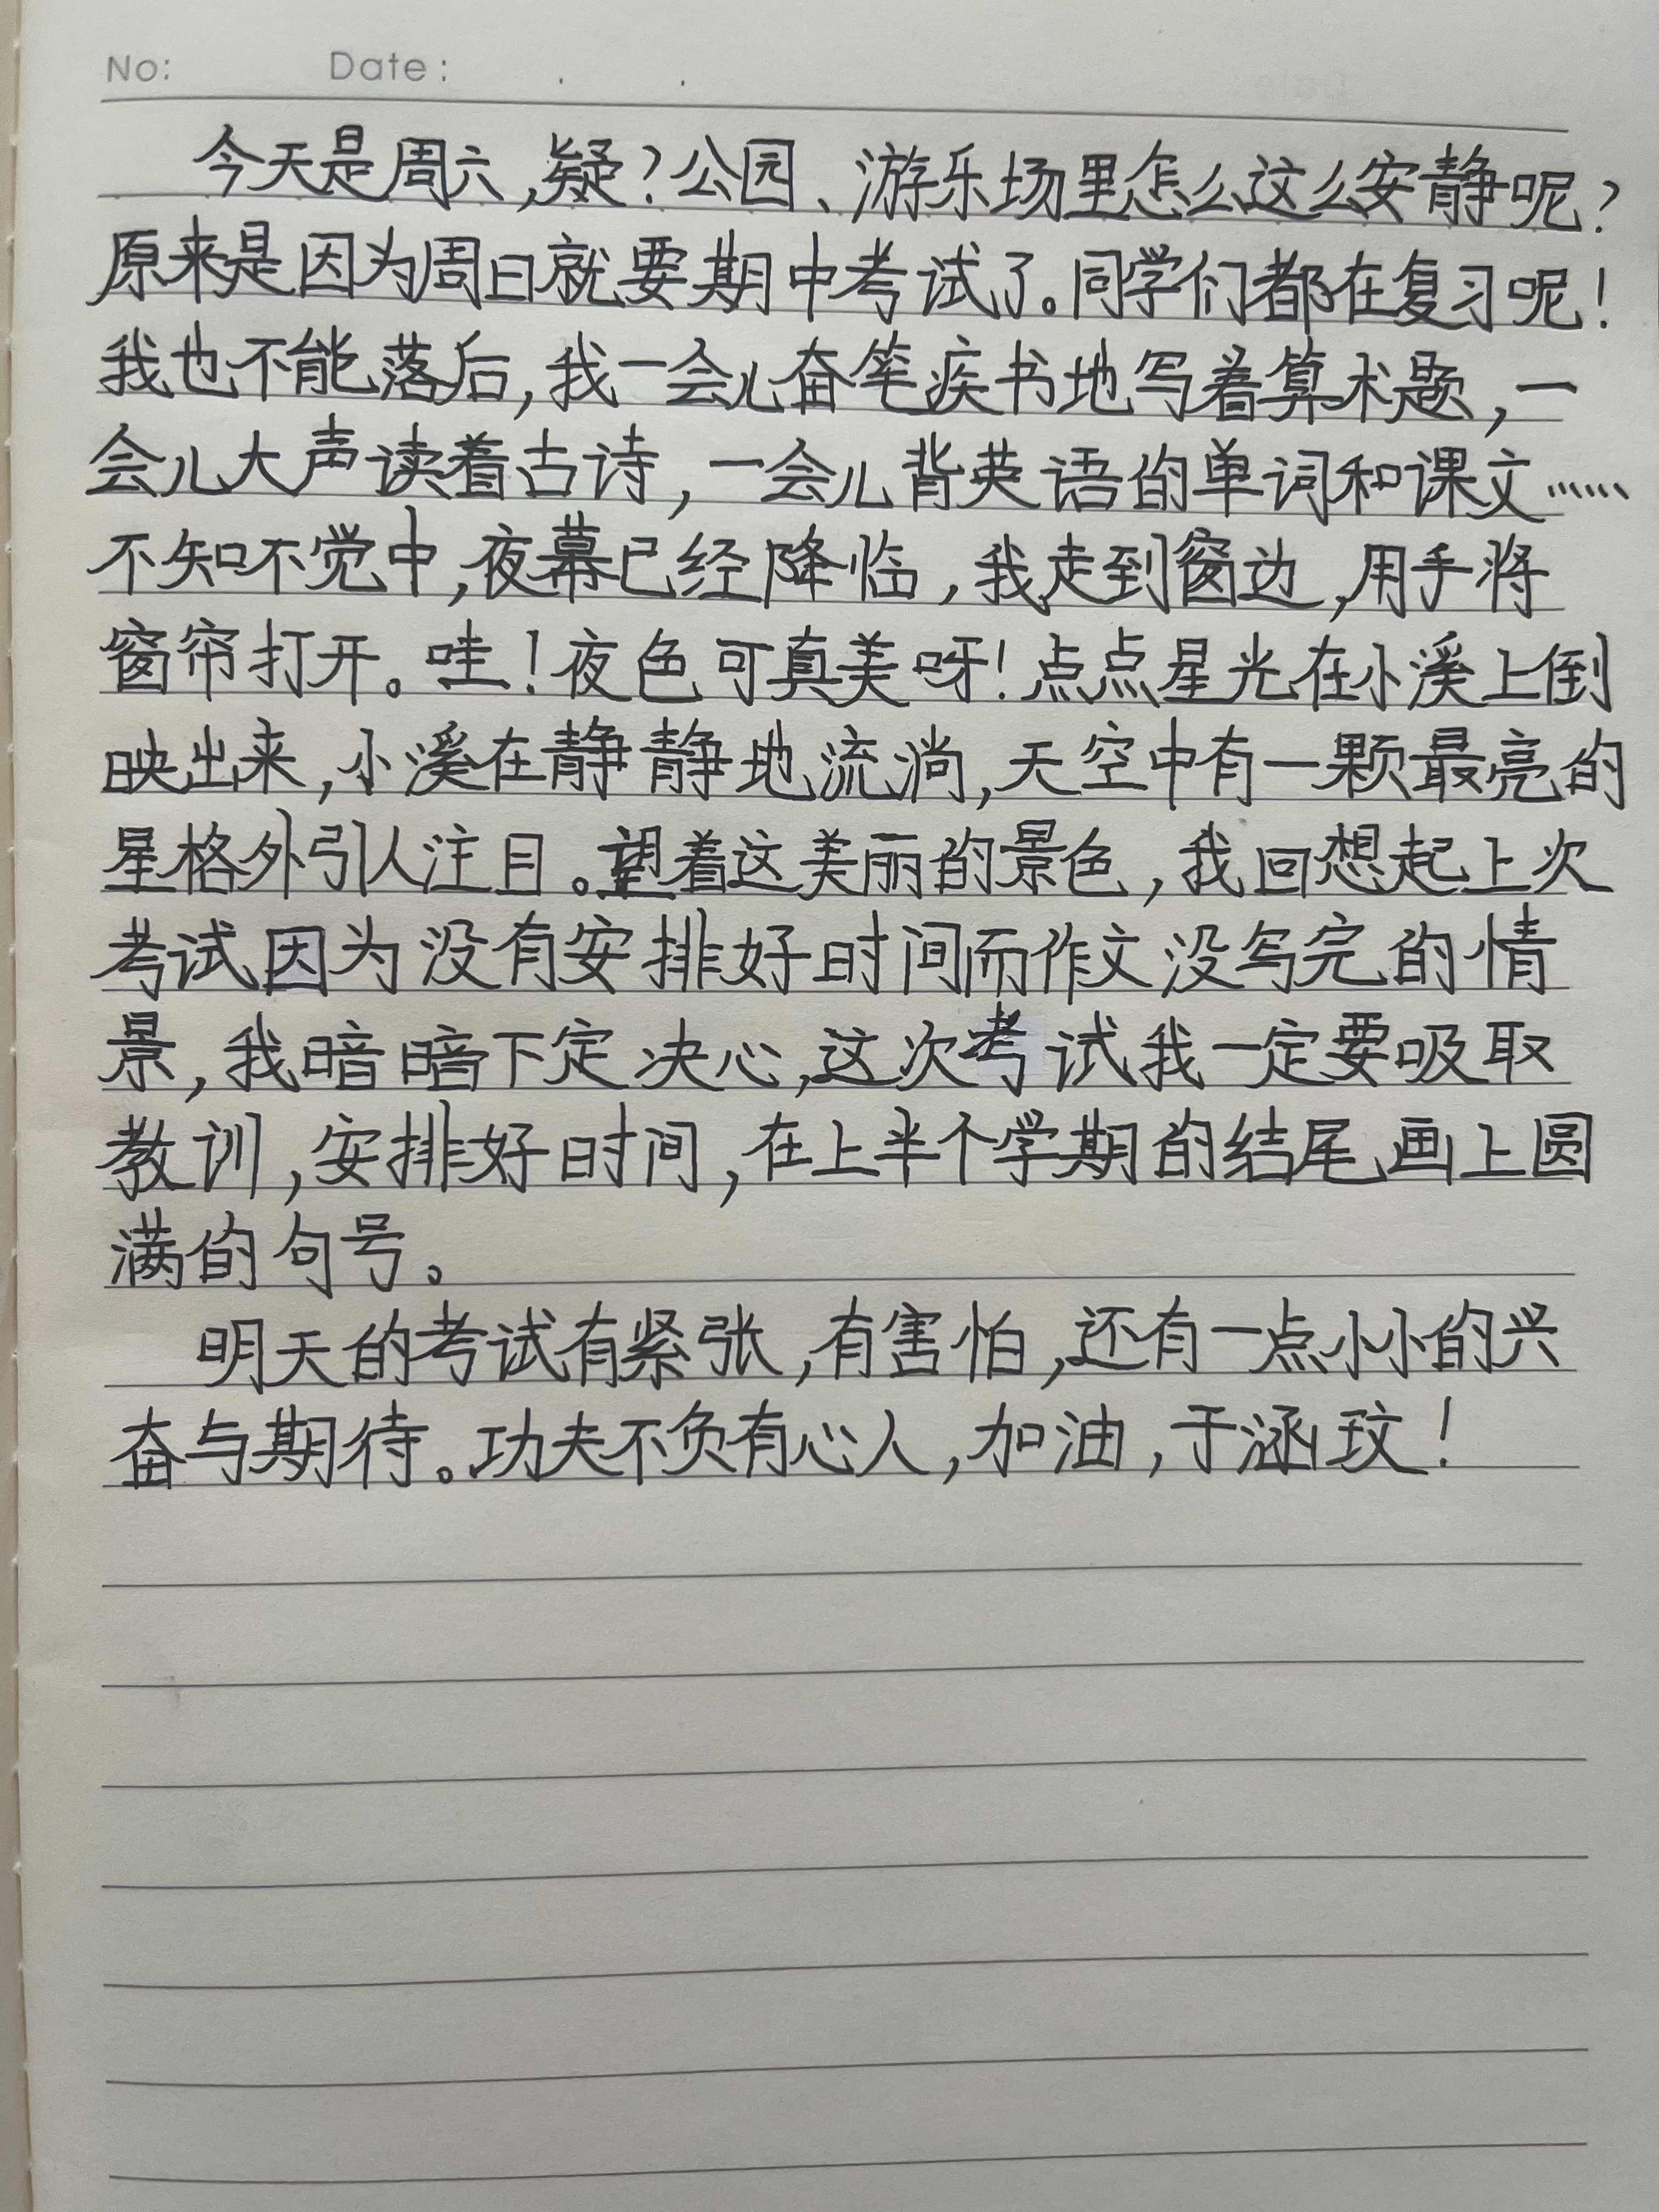 No: Date: . .
今天是周六,疑?公园、游乐场里怎么这么安静呢?
原来是因为周日就要期中考试了。同学们都在复习呢!
我也不能落后,我一会儿奋笔疾书地写着算术题,一
会儿大声读着古诗,一会儿背英语的单词和课文……
不知不觉中,夜幕已经降临,我走到窗边,用手将
窗帘打开。哇!夜色可真美呀!点点星光在小溪上倒
映出来,小溪在静静地流淌,天空中有一颗最亮的
星格外引人注目。望着这美丽的景色,我回想起上次
考试因为没有安排好时间而作文没写完的情
景,我暗暗下定决心,这次考试我一定要吸取
教训,安排好时间,在上半个学期的结尾画上圆
满的句号。
明天的考试有紧张,有害怕,还有一点小小的兴
奋与期待。功夫不负有心人,加油,于涵玟!